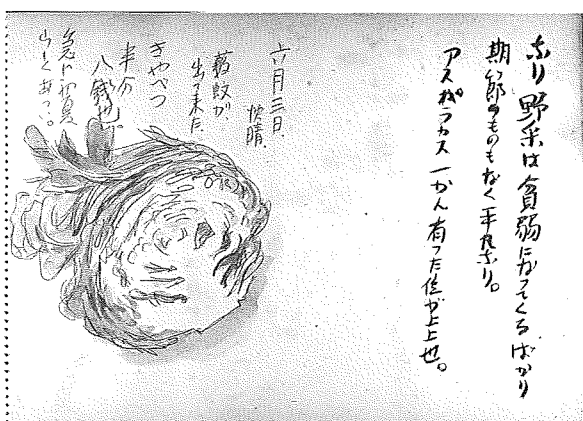 なり 野菜は貧弱になつてくるばかり
期節のものもなく平凡なり。
アスパラカス 一かん 有つた位が上上也。
六月三日、快晴、
藪蚊が、
出て来た
きやべつ
半分
八銭也、
急に夏
らしくあつい。